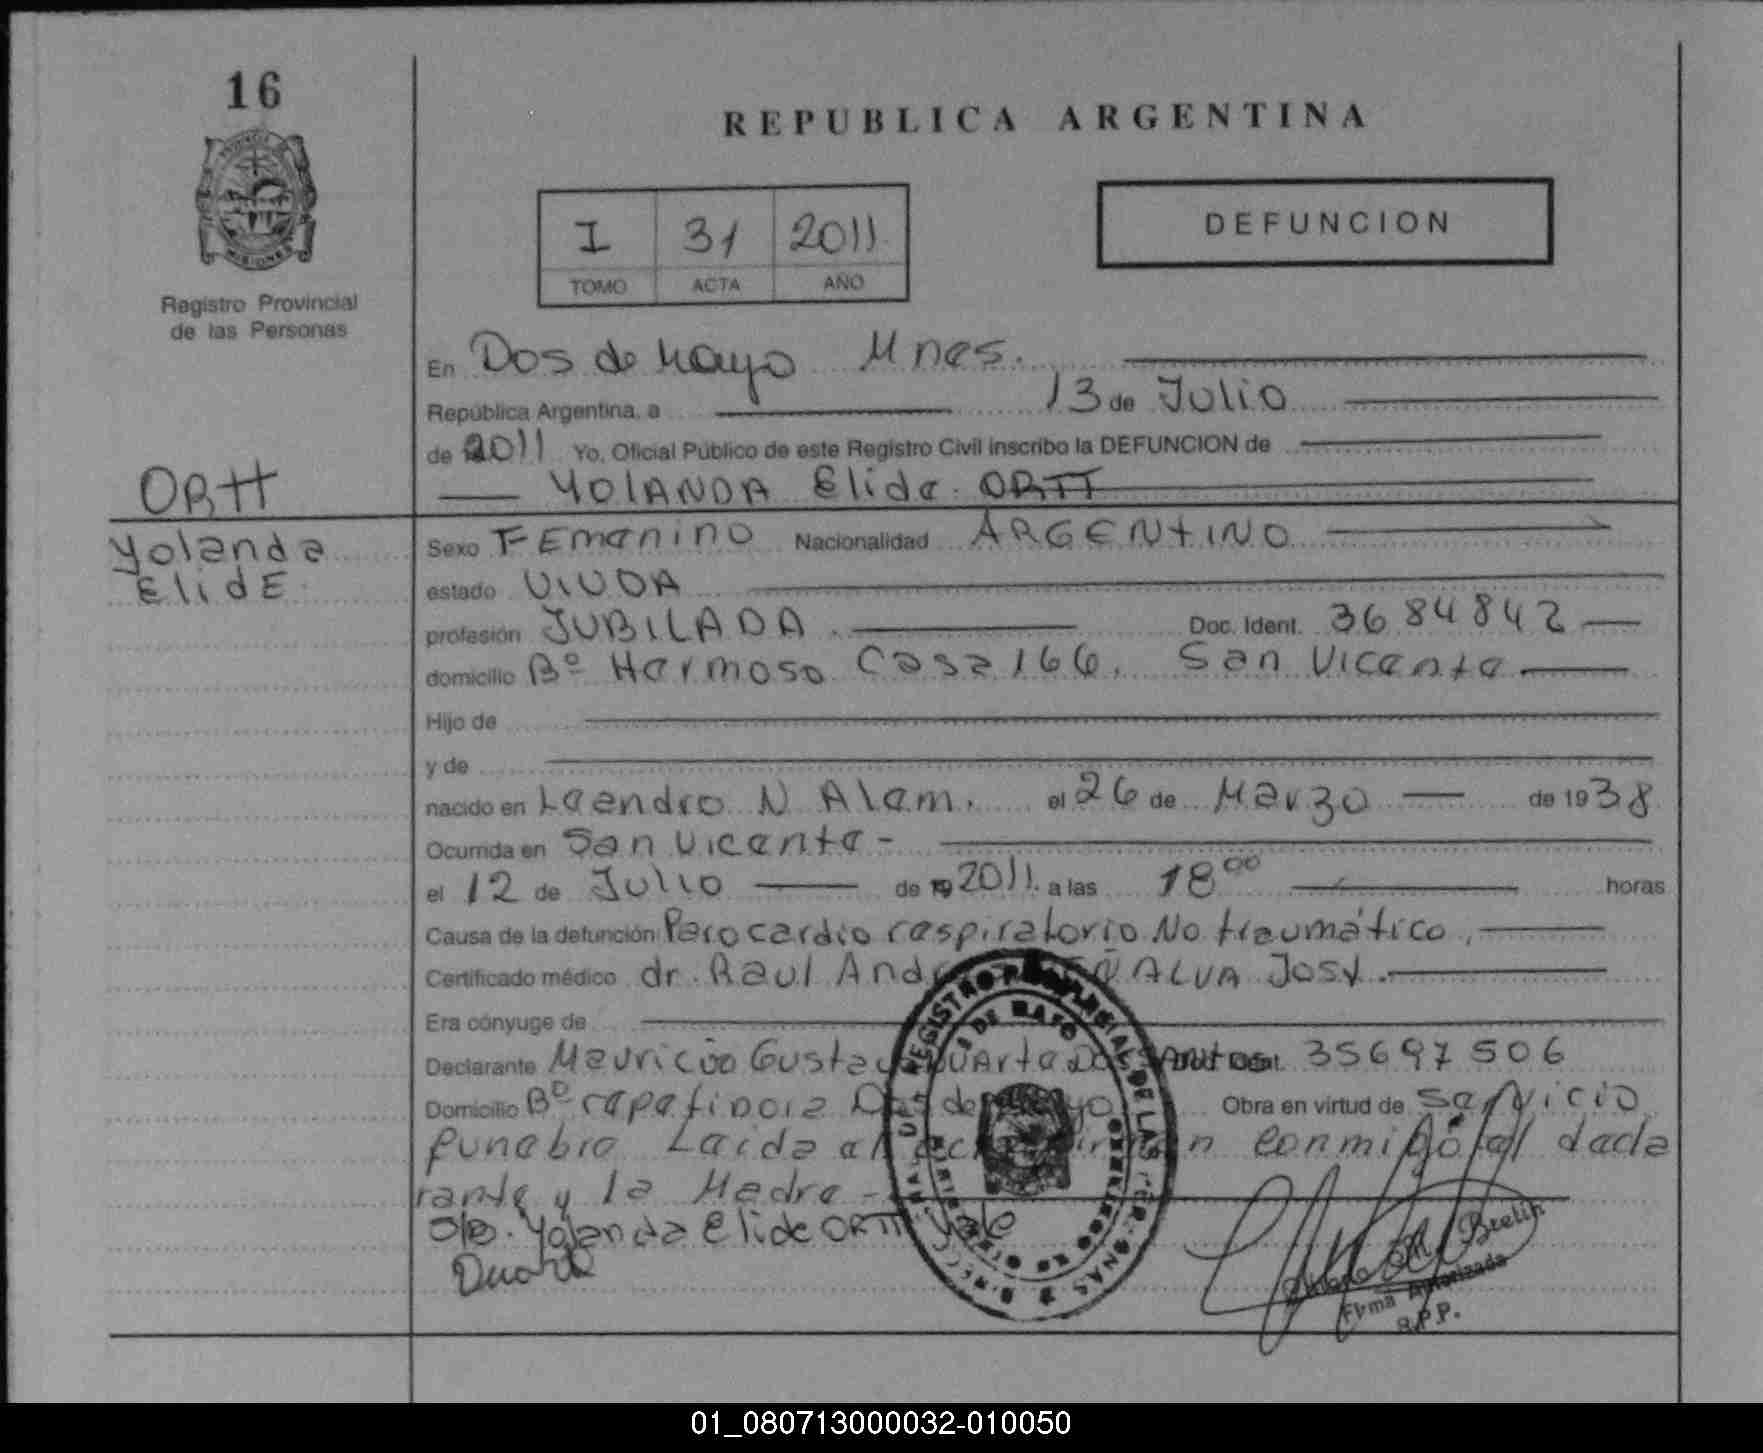 16
REPUBLICA ARGENTINA
MISIONES
Registro Provincial
de las Personas
I 31 2011
TOMO ACTA AÑO
DEFUNCION
En Dos de Mayo Mnes.
República Argentina, a 13 de Julio
de 2011 Yo, Oficial Público de este Registro Civil inscribo la DEFUNCION de
YOLANDA Elide ORTT
ORTT
Yolanda
ElidE
Sexo FEmenino Nacionalidad ARGENtINO
estado VIUDA
profesión JUBILADA. Doc. Ident. 3684842
domicilio Bº Hermoso Casa 166. San Vicente
Hijo de
y de
nacido en Leandro N Alem. el 26 de Marzo de 1938
Ocurrida en San Vicente -
el 12 de Julio de 19 2011. a las 18 00 horas
Causa de la defunción Paro cardio respiratorio No traumático.
Certificado médico dr. Raul ALVA Josy.
Era cónyuge de
Declarante Mauricio Gustavo DUArte DOS SANtos Doc Ident. 35697506
Domicilio Bº Dos de Mayo Obra en virtud de Servicio
funebre Leida el acta firman conmigo el decla
rante y la Madre -
S/B. Yolanda Elide ORTT Vale
Duarte
REGISTRO PROVINCIAL DE LAS PERSONAS
DE MAYO
Firma Autorizada
R.P.P.
01_080713000032-010050